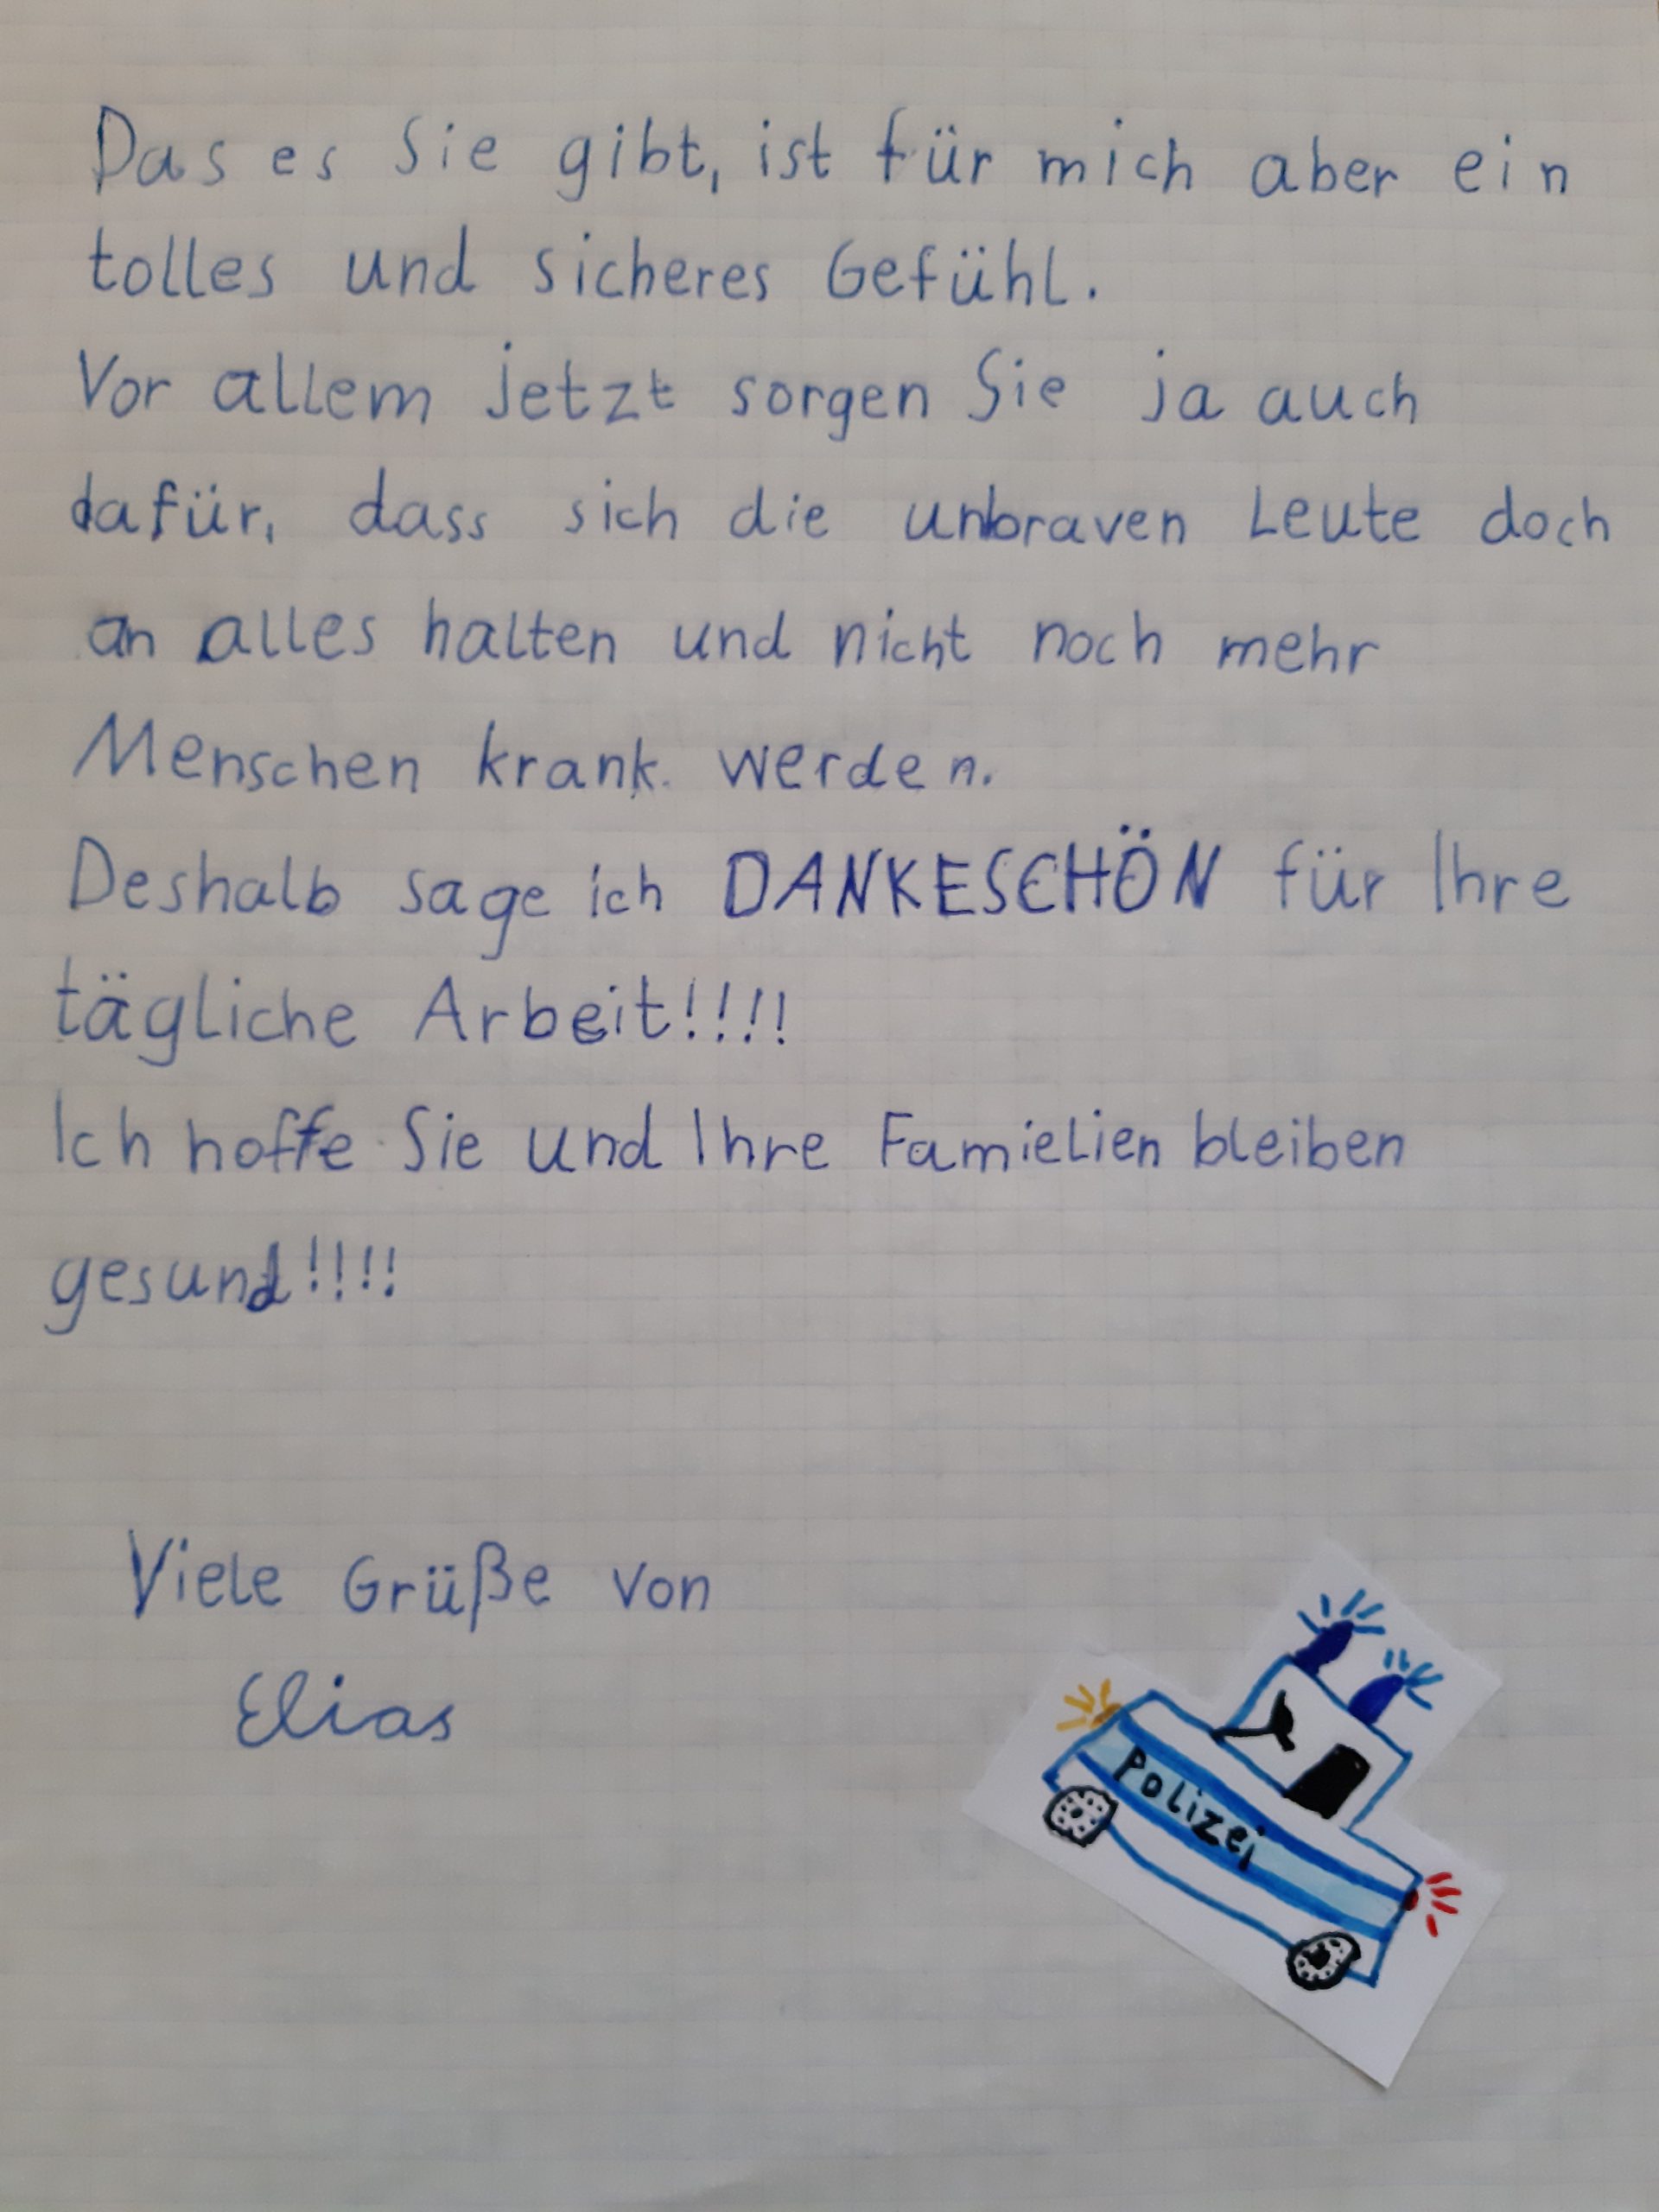 Das es Sie gibt, ist für mich aber ein
tolles und sicheres Gefühl.
Vor allem jetzt sorgen Sie ja auch
dafür, dass sich die unbraven Leute doch
an alles halten und nicht noch mehr
Menschen krank werden.
Deshalb sage ich DANKESCHÖN für Ihre
tägliche Arbeit!!!!
Ich hoffe Sie und Ihre Famielien bleiben
gesund!!!!
Viele Grüße von
Elias
Polizei